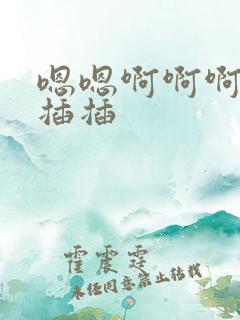 嗯嗯啊啊啊
插插
霍震霆
未经同意禁止转载